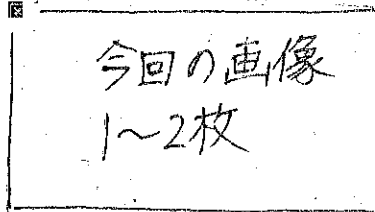 今回の画像
1～2枚